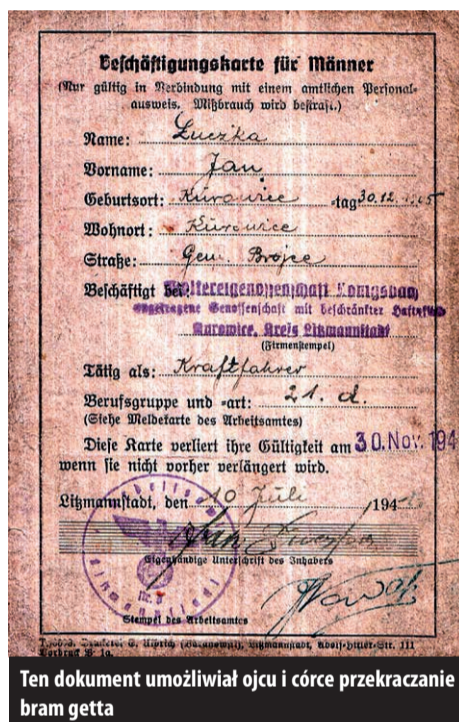 Beschäftigungskarte für Männer
(Nur gültig in Verbindung mit einem amtlichen Personal-
ausweis. Mißbrauch wird bestraft.)
Name: Luczka
Vorname: Jan
Geburtsort: Kurowice -tag 30.12.
Wohnort: Kurowice
Straße: Gem. Brojce
Beschäftigt bei Molkereigenossenschaft Königsbach
eingetragene Genossenschaft mit beschränkter Haftpflicht
Kurowice, Kreis Litzmannstadt
(Firmenstempel)
Tätig als: Kraftfahrer
Berufsgruppe und -art: 21. d.
(Siehe Meldekarte des Arbeitsamtes)
Diese Karte verliert ihre Gültigkeit am 30. Nov. 194
wenn sie nicht vorher verlängert wird.
Litzmannstadt, den 10 Juli /194
Eigenhändige Unterschrift des Inhabers
Stempel des Arbeitsamtes
Litzmannstadt, Adolf-Hitler-Str. 111
Vordruck B 1a.
Ten dokument umożliwiał ojcu i córce przekraczanie
bram getta